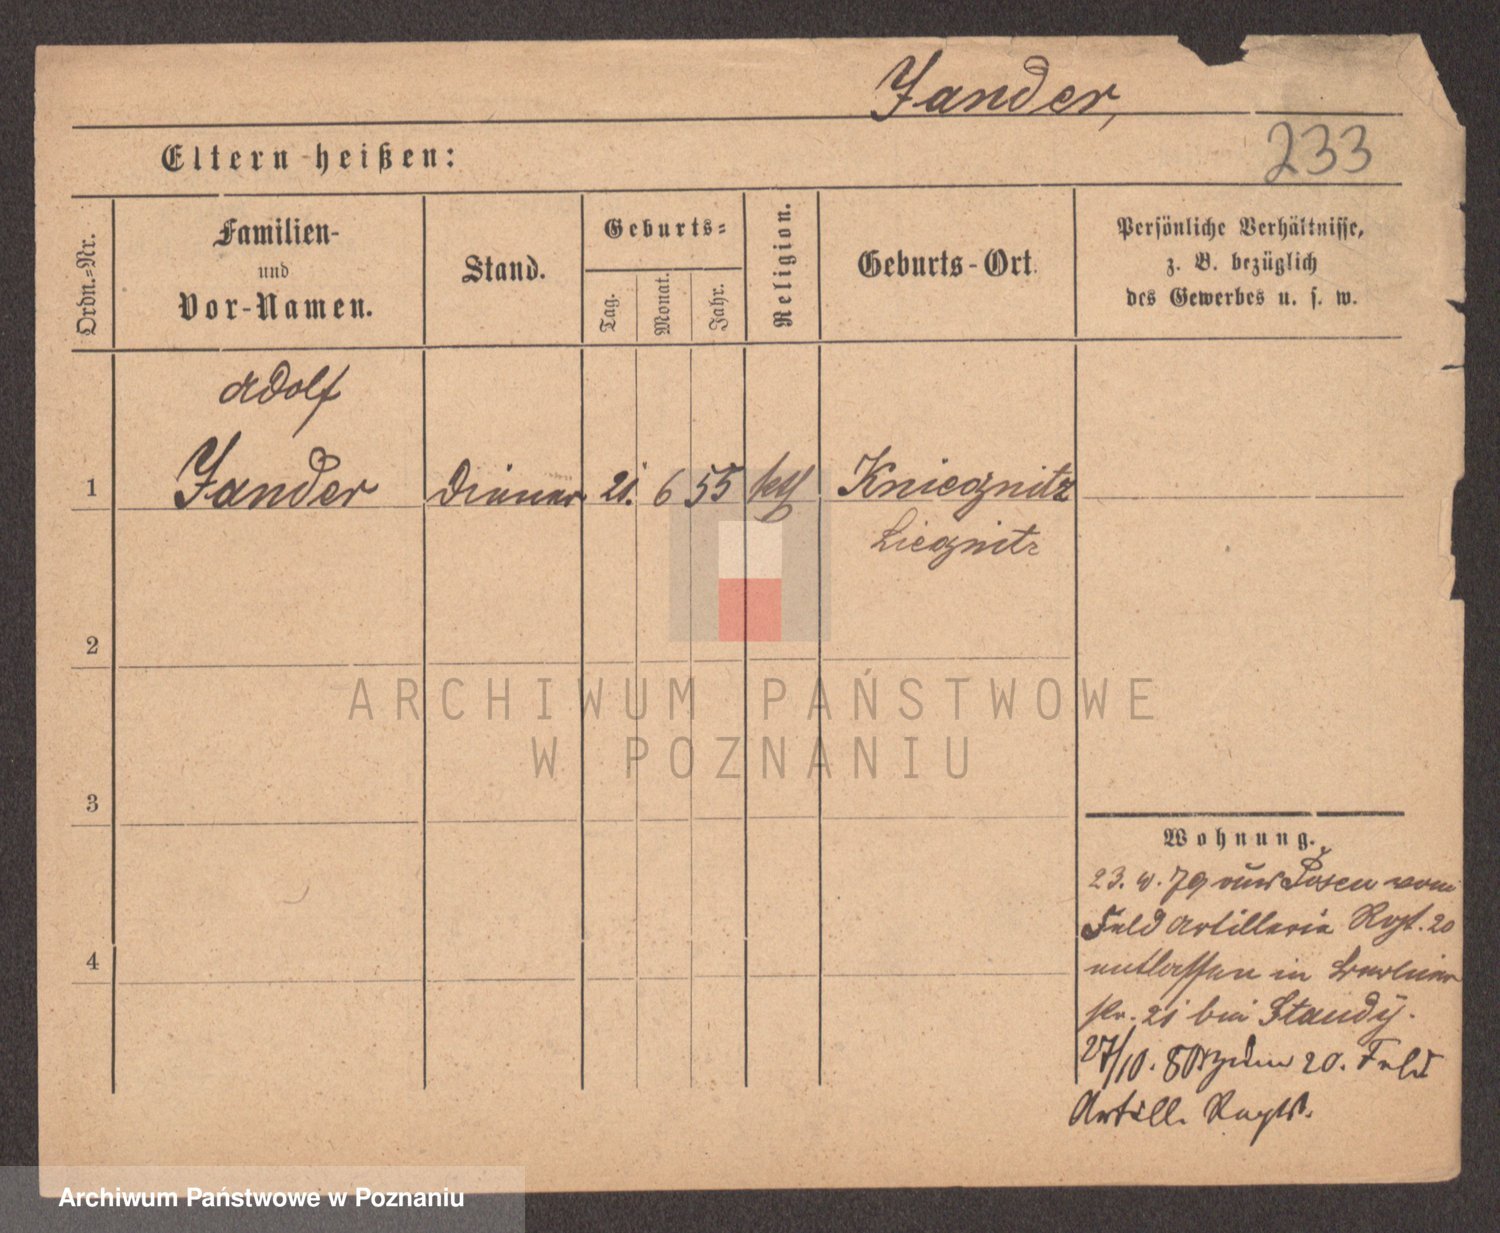 Jander,
233
Eltern heißen:
Ordn.=Nr.
Familien-
und
Vor-Namen.
Stand.
Geburts=
Tag.
Monat.
Jahr.
Religion.
Geburts-Ort.
Persönliche Verhältnisse,
z. B. bezüglich
des Gewerbes u. s. w.
Adolf
1 Jander Diener 21. 6 55 kth Kniegnitz
Liegnitz
2
ARCHIWUM PAŃSTWOWE
W POZNANIU
3
Wohnung.
23. 79 aus Posen vom
Feld Artillerie Rgt. 20
entlassen in
21 bei Standy.
27/10. 80 zum 20. Feld
Artill. Regt.
4
Archiwum Państwowe w Poznaniu